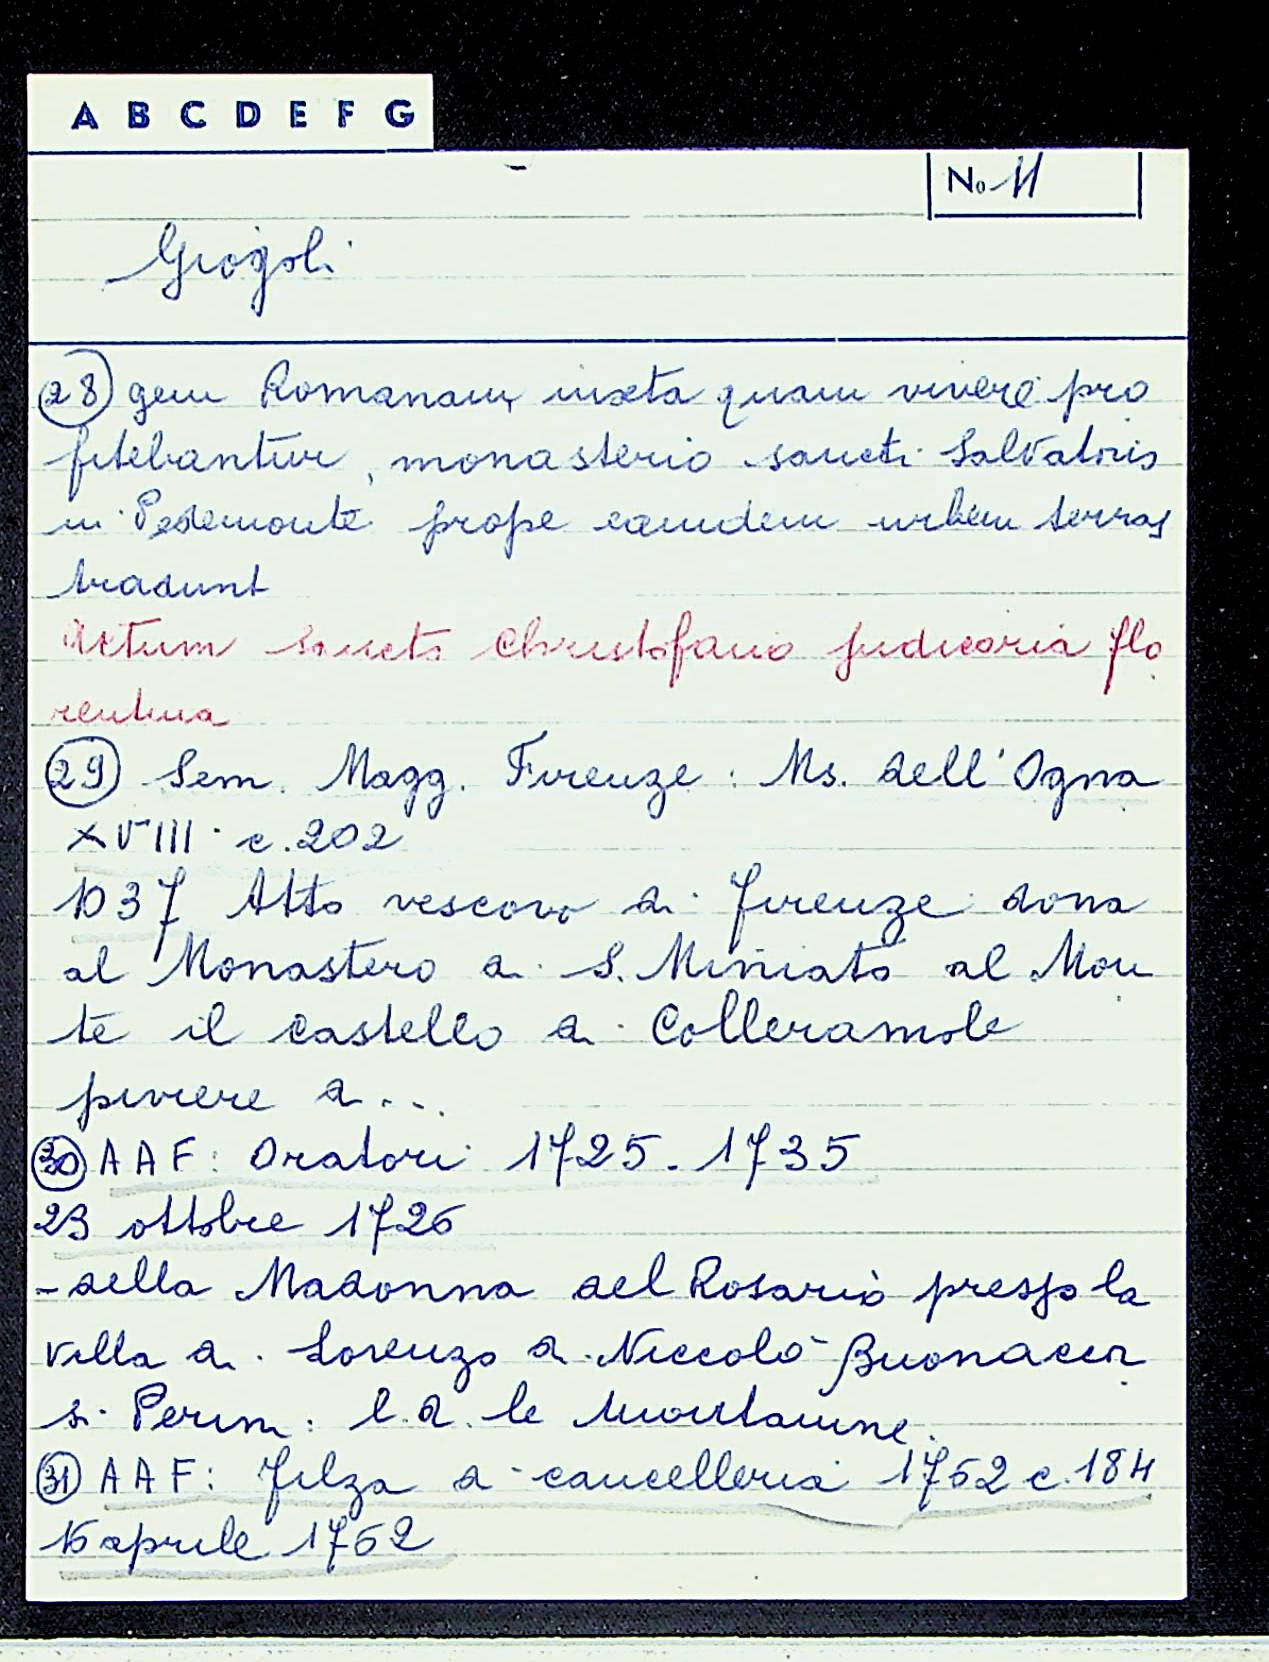 A B C D E F G
No 11
Giogoli
28 gem Romanam, iuxta quam vivere pro
fitebantur, monasterio sancti Salvatoris
in Pedemonte prope eamdem urbem terras
tradunt
Actum sancto Christofano judicaria flo
rentina
29 Sem. Magg. Firenze: Ms. dell'Ogna
XVIII c. 202
1037 Atto vescovo di Firenze dona
al Monastero di S. Miniato al Mon
te il castello di Colleramole
piviere di...
30 AAF: Oratori 1725-1735
23 ottobre 1726
- della Madonna del Rosario presso la
villa di Lorenzo di Niccolò Buonaccor
si l.d. le
31 AAF: Filza di cancelleria 1762 c. 184
16 aprile 1762